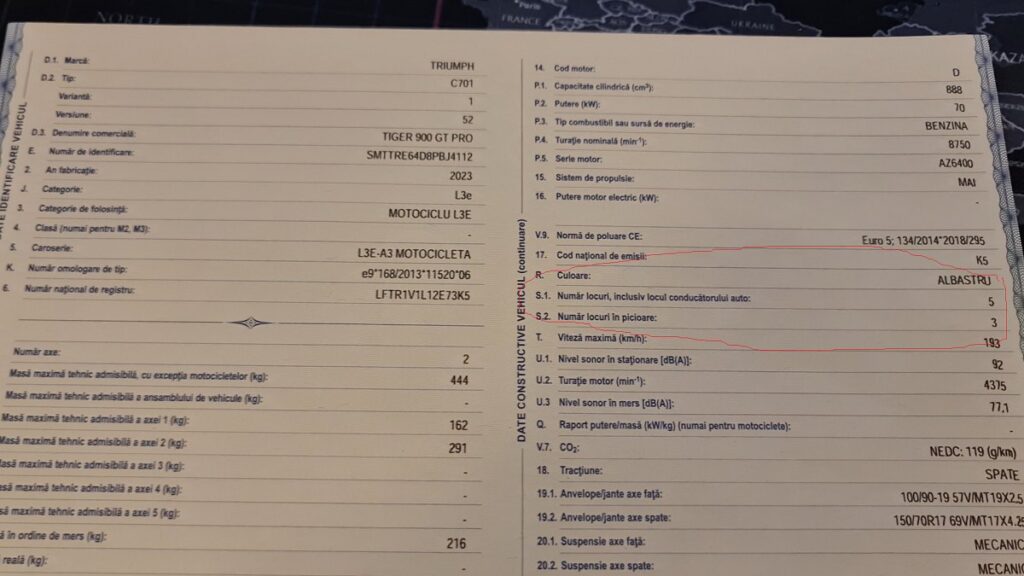 NORTH
Paris
FRANCE
UKRAINE
KAZA
DATE IDENTIFICARE VEHICUL
D.1. Marcă: TRIUMPH
D.2. Tip: C701
Variantă: 1
Versiune: 52
D.3. Denumire comercială: TIGER 900 GT PRO
E. Număr de identificare: SMTTRE64D8PBJ4112
2. An fabricație: 2023
J. Categorie: L3e
3. Categorie de folosință: MOTOCICLU L3E
4. Clasă (numai pentru M2, M3): -
5. Caroserie: L3E-A3 MOTOCICLETA
K. Număr omologare de tip: e9*168/2013*11520*06
6. Număr național de registru: LFTR1V1L12E73K5
Număr axe: 2
Masă maximă tehnic admisibilă, cu excepția motocicletelor (kg): 444
Masă maximă tehnic admisibilă a ansamblului de vehicule (kg): -
Masă maximă tehnic admisibilă a axei 1 (kg): 162
Masă maximă tehnic admisibilă a axei 2 (kg): 291
Masă maximă tehnic admisibilă a axei 3 (kg): -
asă maximă tehnic admisibilă a axei 4 (kg): -
să maximă tehnic admisibilă a axei 5 (kg): -
ă în ordine de mers (kg): 216
reală (kg): -
DATE CONSTRUCTIVE VEHICUL (continuare)
14. Cod motor: D
P.1. Capacitate cilindrică (cm³): 888
P.2. Putere (kW): 70
P.3. Tip combustibil sau sursă de energie: BENZINA
P.4. Turație nominală (min⁻¹): 8750
P.5. Serie motor: AZ6400
15. Sistem de propulsie: MAI
16. Putere motor electric (kW): -
V.9. Normă de poluare CE: Euro 5; 134/2014*2018/295
17. Cod național de emisii: K5
R. Culoare: ALBASTRU
S.1. Număr locuri, inclusiv locul conducătorului auto: 5
S.2. Număr locuri în picioare: 3
T. Viteză maximă (km/h): 193
U.1. Nivel sonor în staționare [dB(A)]: 92
U.2. Turație motor (min⁻¹): 4375
U.3 Nivel sonor în mers [dB(A)]: 77,1
Q. Raport putere/masă (kW/kg) (numai pentru motociclete): -
V.7. CO₂: NEDC: 119 (g/km)
18. Tracțiune: SPATE
19.1. Anvelope/jante axe față: 100/90-19 57V/MT19X2.5
19.2. Anvelope/jante axe spate: 150/70R17 69V/MT17X4.25
20.1. Suspensie axe față: MECANIC
20.2. Suspensie axe spate: MECANIC